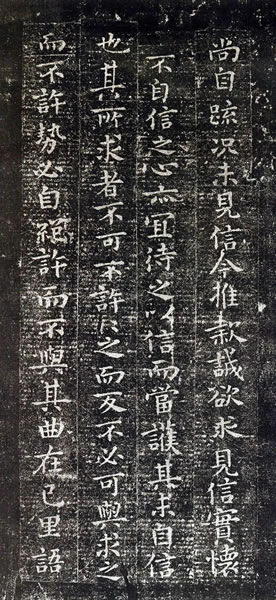 尚自踈况未見信今推款誠欲求見信實懷
不自信之心亦宜待之以信而當護其未自信
也其所求者不可不許々之而反不必可與求之
而不許勢必自絕許而不與其曲在己里語